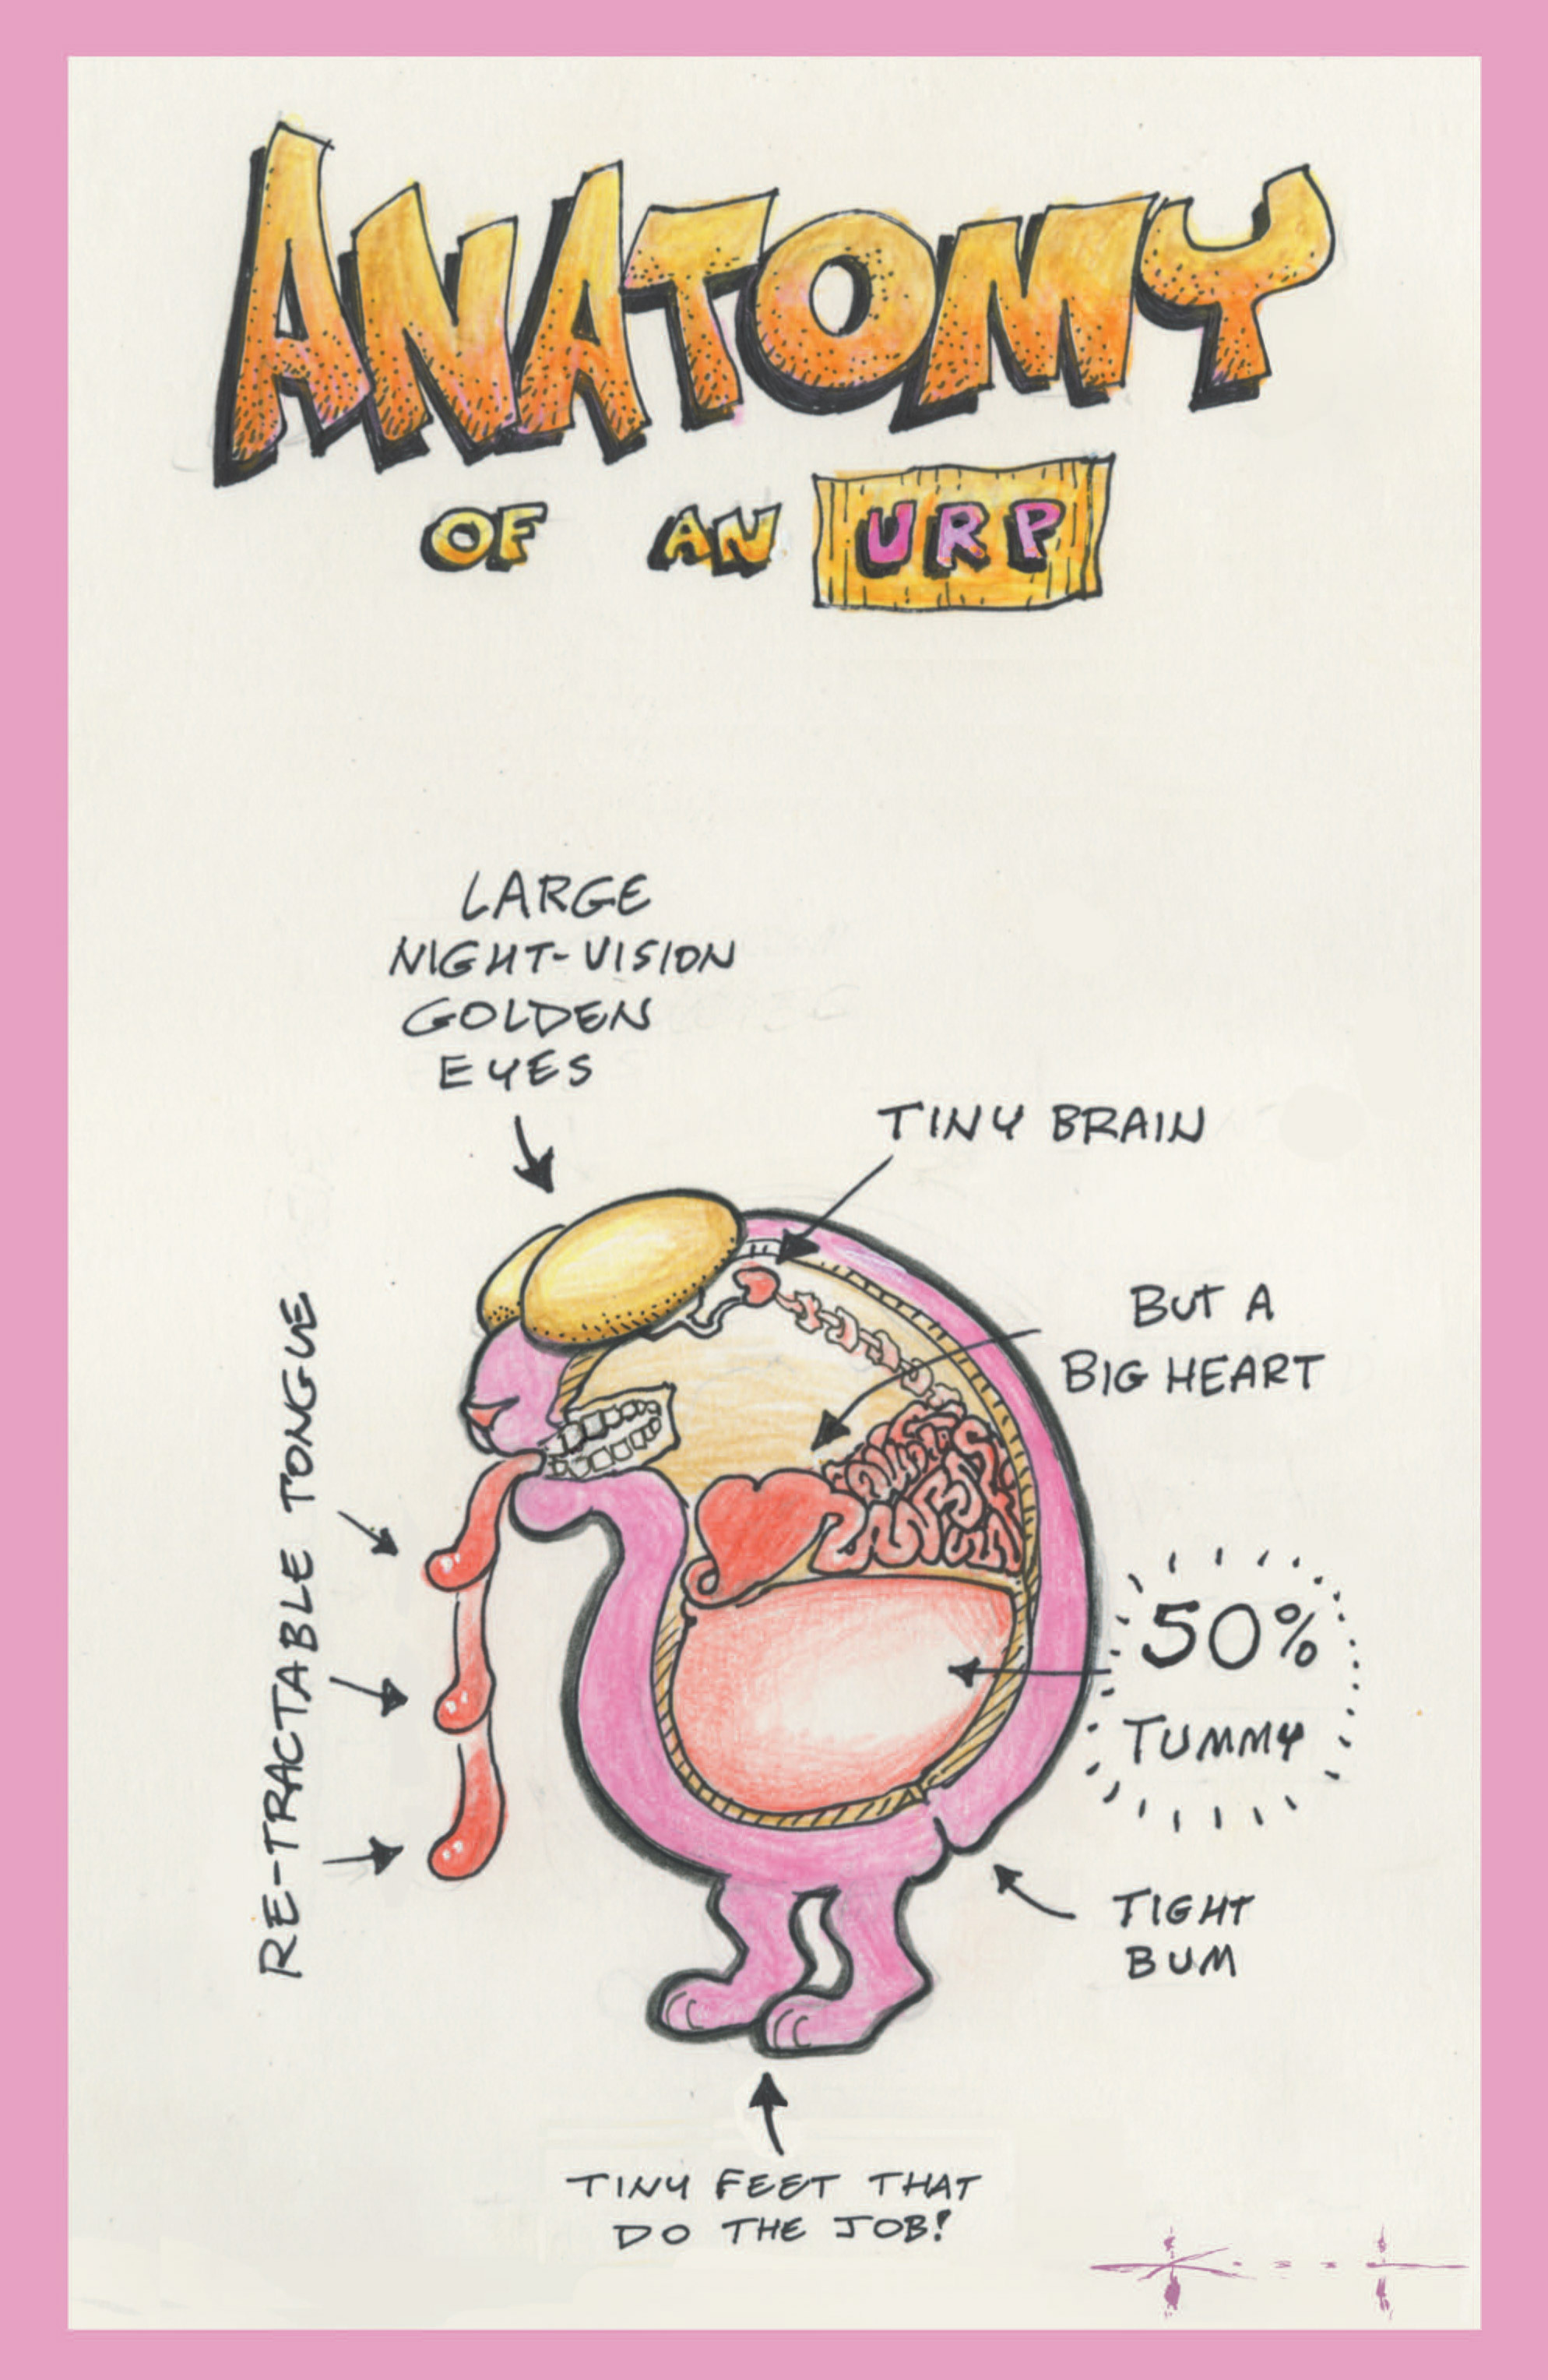 ANATOMY
OF AN URP
LARGE
NIGHT-VISION
GOLDEN
EYES
TINY BRAIN
BUT A
BIG HEART
RE-TRACTABLE TONGUE
50%
TUMMY
TIGHT
BUM
TINY FEET THAT
DO THE JOB!